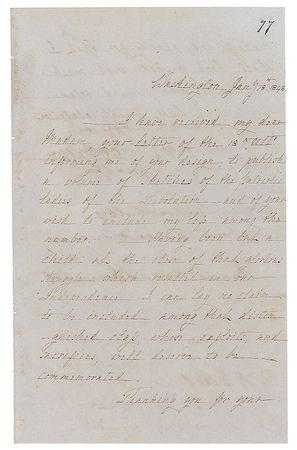 77
Washington Jany 18th 1848
I have received my dear
Madam, your letter of the 18th ult
informing me of your design to publish
a volume of sketches of the Patriotic
ladies of the Revolution and of your
wish to include my life among the
number. Having been but a
child at the close of that glorious
struggle which resulted in our
Independence I can lay no claim
to be included among that distin
guished class whose exploits and
sacrifices well deserve to be
commemorated.
Thanking you for your